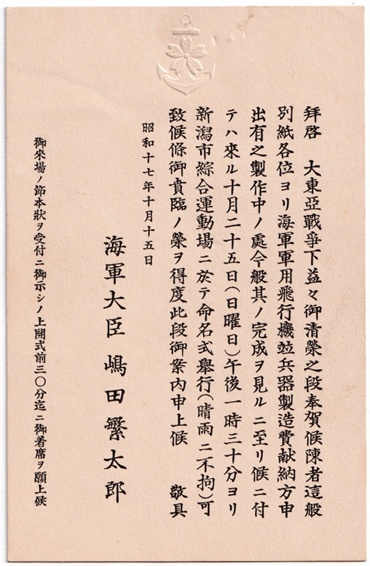 拝啓　大東亞戰爭下益々御清榮之段奉賀候陳者這般
別紙各位ヨリ海軍軍用飛行機竝兵器製造費献納方申
出有之製作中ノ處今般其ノ完成ヲ見ルニ至リ候ニ付
テハ來ル十月二十五日(日曜日)午後一時三十分ヨリ
新潟市綜合運動場ニ於テ命名式擧行(晴雨ニ不拘)可
致候條御貴臨ノ榮ヲ得度此段御案内申上候　敬具
昭和十七年十月十五日
海軍大臣　嶋田繁太郎
御來場ノ節本狀ヲ受付ニ御示シノ上開式前三〇分迄ニ御着席ヲ願上候